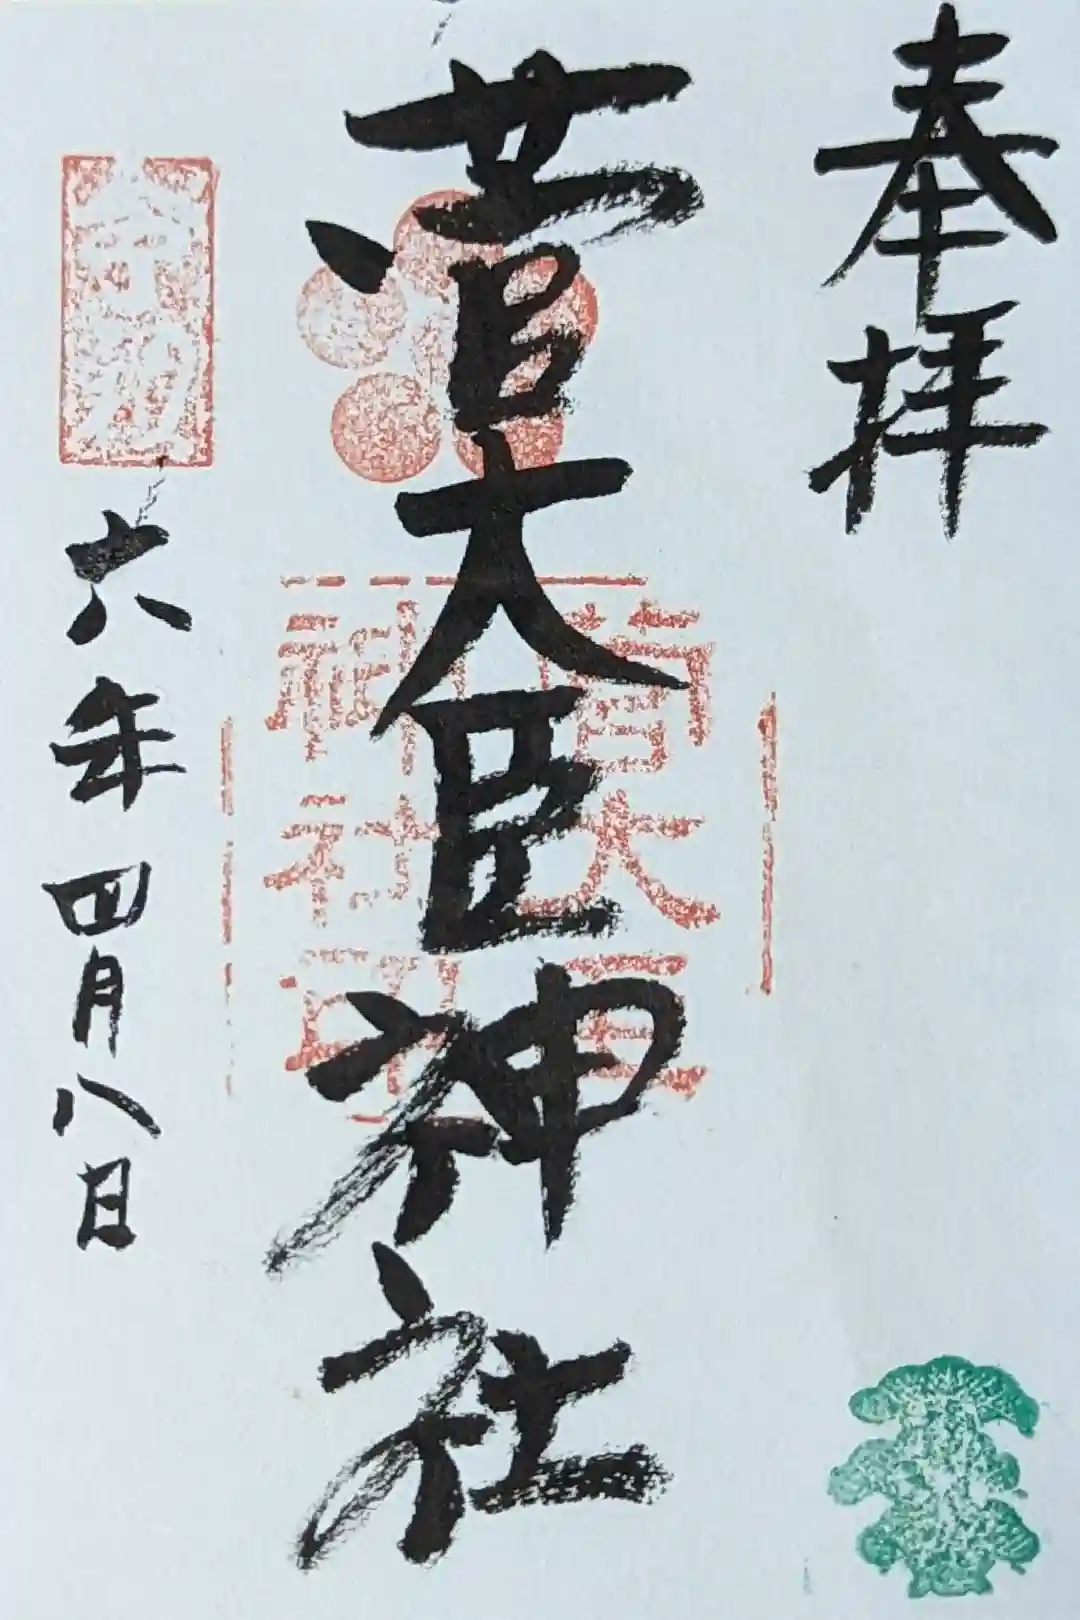 奉拝
菅大臣神社
菅大臣
神社印
令和
六年四月八日